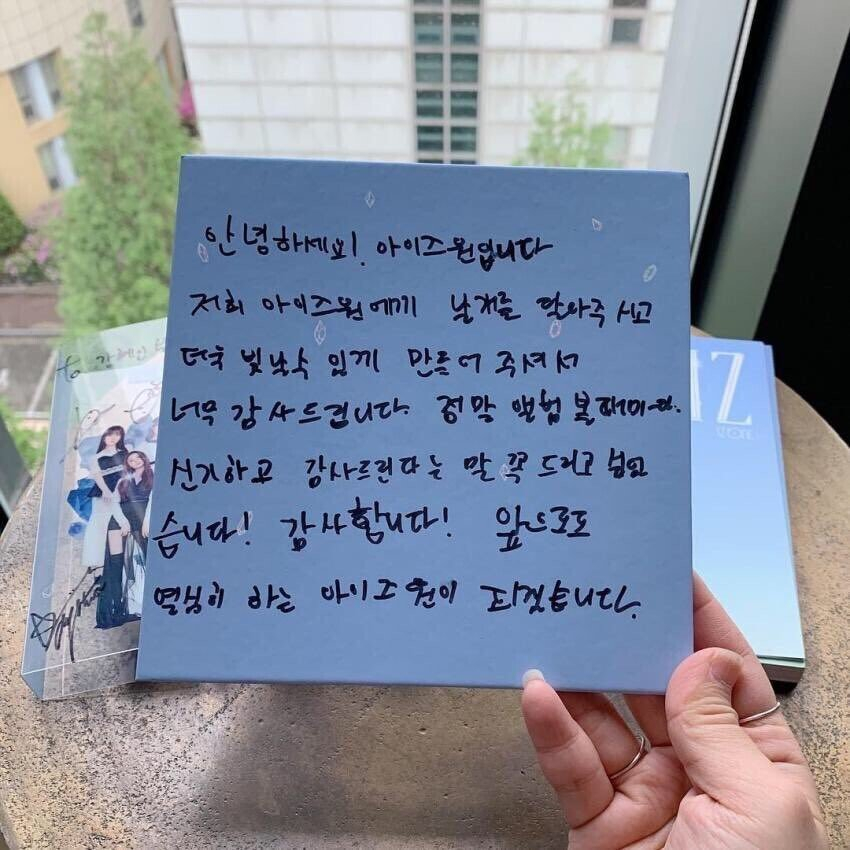 안녕하세요! 아이즈원입니다
저희 아이즈원에게 날개를 달아주시고
더욱 빛날수 있게 만들어 주셔서
너무 감사드립니다. 정말 앨범 볼때마다
신기하고 감사드린다는 말 꼭 드리고 싶었
습니다! 감사합니다! 앞으로도
열심히 하는 아이즈원이 되겠습니다.
to 강혜인
IZ
IZ*ONE